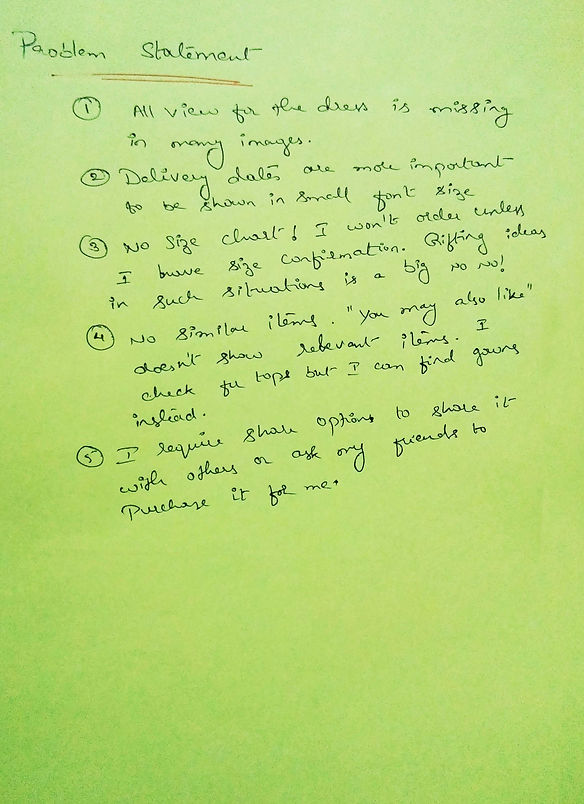 Problem Statement
① All view for the dress is missing
in many images.
② Delivery dates are more important
to be shown in small font size
③ No Size chart! I won't order unless
I have size confirmation. Gifting ideas
in such situations is a big no no!
④ No similar items. "You may also like"
doesn't show relevant items. I
check for tops but I can find gowns
instead.
⑤ I require share options to share it
with others or ask my friends to
Purchase it for me.